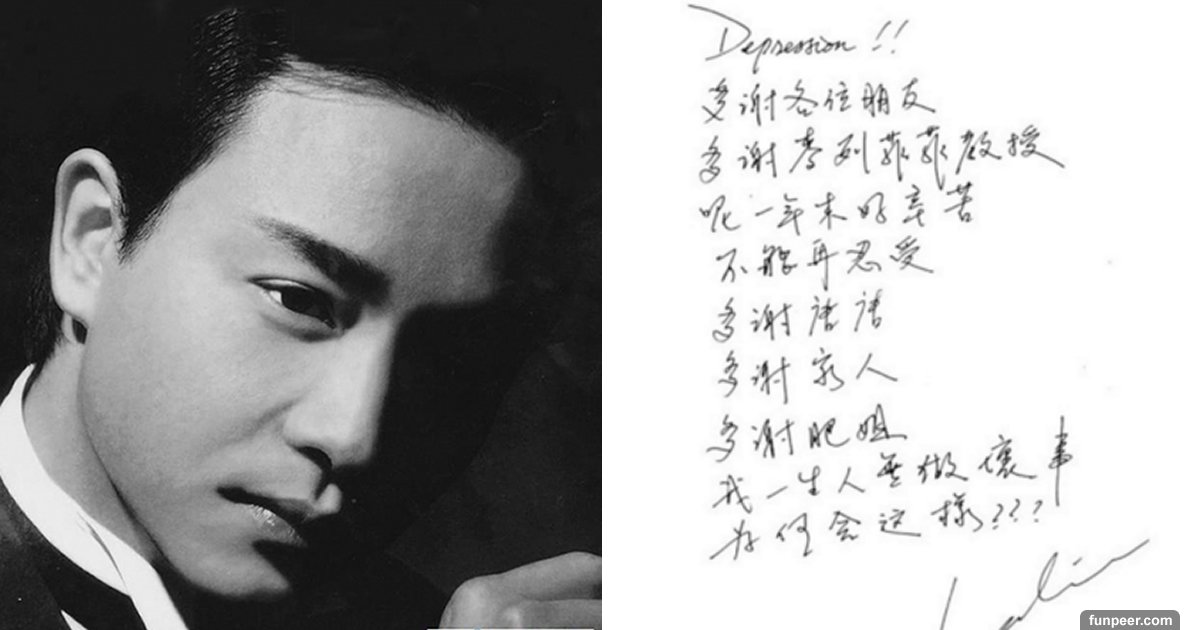 Depression !!
多谢各位朋友
多谢李列菲菲教授
呢一年来好辛苦
不能再忍受
多谢唐唐
多谢家人
多谢肥姐
我一生人無做壞事
为何会这樣???
Leslie
funpeer.com